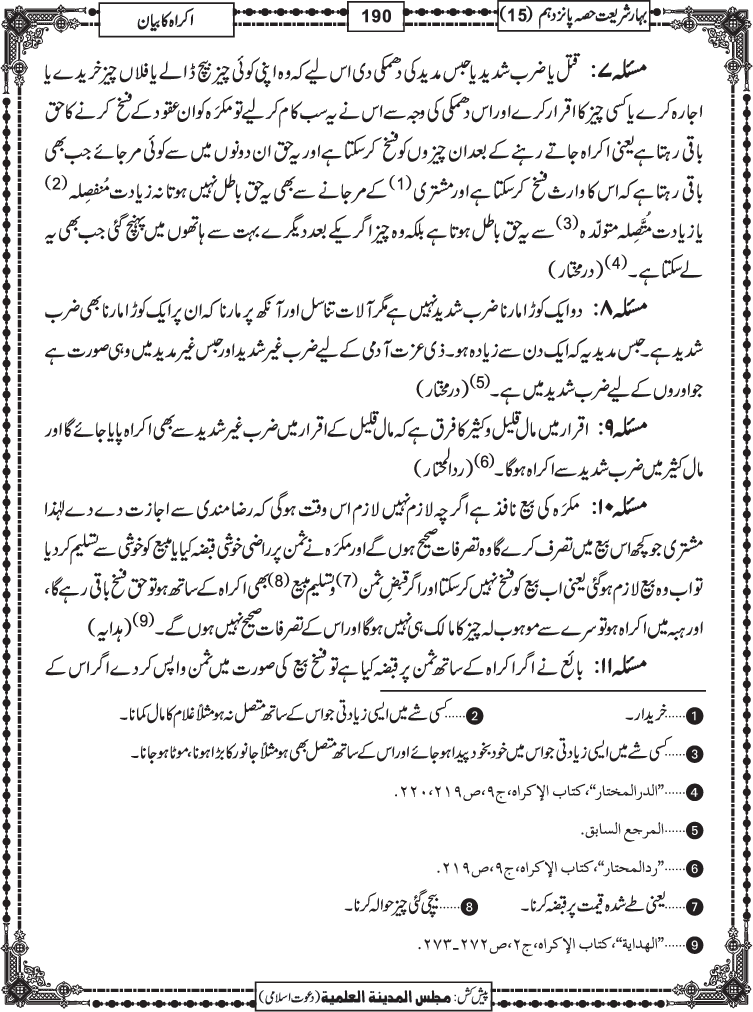 بہارِ شریعت حصہ پانزدہم (15)
190
اکراہ کا بیان
مسئلہ ۷: قتل یا ضرب شدید یا حبس مدید کی دھمکی دی اس لیے کہ وہ اپنی کوئی چیز بیچ ڈالے یا فلاں چیز خریدے یا
اجارہ کرے یا کسی چیز کا اقرار کرے اور اس دھمکی کی وجہ سے اس نے یہ سب کام کر لیے تو مکرَہ کو ان عقود کے فسخ کرنے کا حق
باقی رہتا ہے یعنی اکراہ جاتے رہنے کے بعد ان چیزوں کو فسخ کرسکتا ہے اور یہ حق ان دونوں میں سے کوئی مرجائے جب بھی
باقی رہتا ہے کہ اس کا وارث فسخ کرسکتا ہے اور مشتری (1) کے مرجانے سے بھی یہ حق باطل نہیں ہوتا نہ زیادت مُنفصِلہ (2)
یا زیادت مُتَّصِلہ متولّدہ (3) سے یہ حق باطل ہوتا ہے بلکہ وہ چیز اگر یکے بعد دیگرے بہت سے ہاتھوں میں پہنچ گئی جب بھی یہ
لے سکتا ہے۔ (4) (درمختار)
مسئلہ ۸: دو ایک کوڑا مارنا ضرب شدید نہیں ہے مگر آلات تناسل اور آنکھ پر مارنا کہ ان پر ایک کوڑا مارنا بھی ضرب
شدید ہے۔ حبس مدید یہ کہ ایک دن سے زیادہ ہو۔ ذی عزت آدمی کے لیے ضرب غیر شدید اور حبس غیر مدید میں وہی صورت ہے
جو اوروں کے لیے ضرب شدید میں ہے۔ (5) (درمختار)
مسئلہ ۹: اقرار میں مال قلیل و کثیر کا فرق ہے کہ مال قلیل کے اقرار میں ضرب غیر شدید سے بھی اکراہ پایا جائے گا اور
مال کثیر میں ضرب شدید سے اکراہ ہوگا۔ (6) (ردالمحتار)
مسئلہ ۱۰: مکرَہ کی بیع نافذ ہے اگرچہ لازم نہیں لازم اس وقت ہوگی کہ رضا مندی سے اجازت دے دے لہٰذا
مشتری جو کچھ اس بیع میں تصرف کرے گا وہ تصرفات صحیح ہوں گے اور مکرَہ نے ثمن پر راضی خوشی قبضہ کیا یا مبیع کو خوشی سے تسلیم کردیا
تو اب وہ بیع لازم ہوگئی یعنی اب بیع کو فسخ نہیں کرسکتا اور اگر قبضِ ثمن (7) و تسلیم مبیع (8) بھی اکراہ کے ساتھ ہو تو حق فسخ باقی رہے گا،
اور ہبہ میں اکراہ ہو تو سرے سے موہوب لہ چیز کا مالک ہی نہیں ہوگا اور اس کے تصرفات صحیح نہیں ہوں گے۔ (9) (ہدایہ)
مسئلہ ۱۱: بائع نے اگر اکراہ کے ساتھ ثمن پر قبضہ کیا ہے تو فسخ بیع کی صورت میں ثمن واپس کردے اگر اس کے
1 ......خریدار۔ 2 ......کسی شے میں ایسی زیادتی جو اس کے ساتھ متصل نہ ہو مثلاً غلام کا مال کمانا۔
3 ......کسی شے میں ایسی زیادتی جو اس میں خود بخود پیدا ہوجائے اور اس کے ساتھ متصل بھی ہو مثلاً جانور کا بڑا ہونا، موٹا ہو جانا۔
4 ......"الدرالمختار"، کتاب الإکراہ، ج۹، ص۲۱۹، ۲۲۰.
5 ......المرجع السابق.
6 ......"ردالمحتار"، کتاب الإکراہ، ج۹، ص۲۱۹.
7 ......یعنی طے شدہ قیمت پر قبضہ کرنا۔ 8 ......بیچی گئی چیز حوالہ کرنا۔
9 ......"الھدایة"، کتاب الإکراہ، ج۲، ص۲۷۲-۲۷۳.
پیش کش: مجلس المدینة العلمیة (دعوتِ اسلامی)